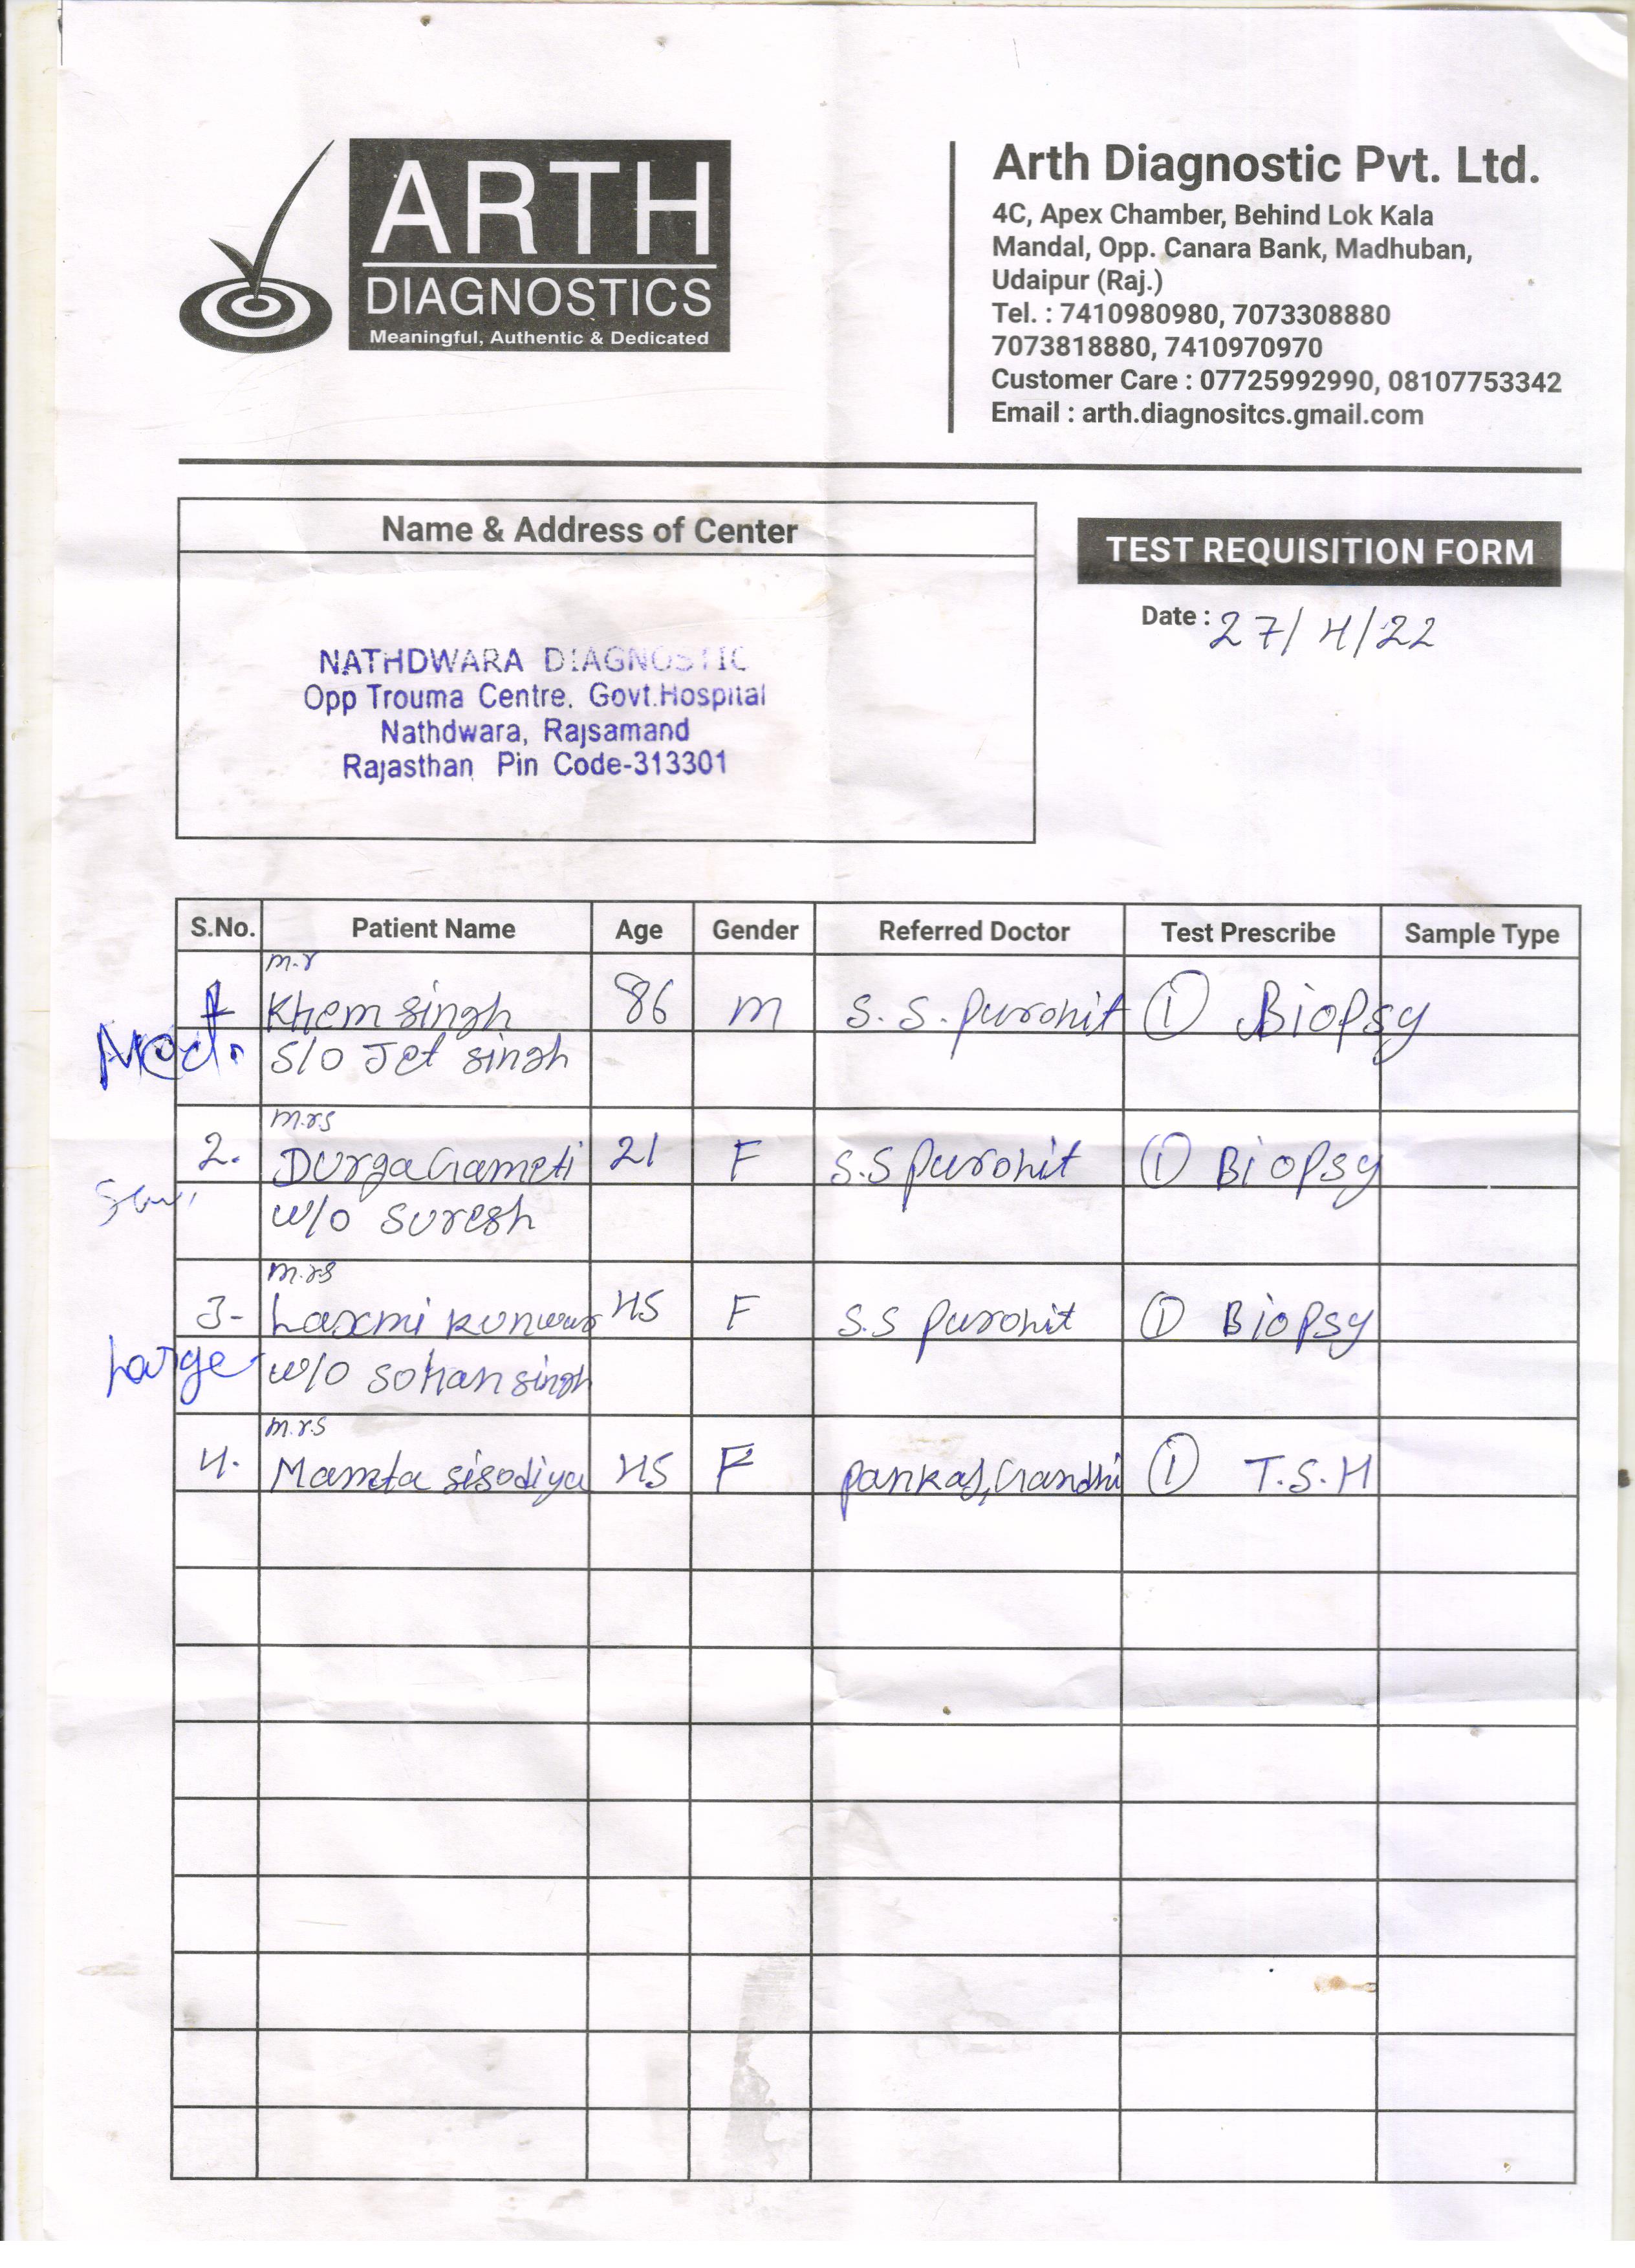 ARTH
DIAGNOSTICS
Meaningful, Authentic & Dedicated
Arth Diagnostic Pvt. Ltd.
4C, Apex Chamber, Behind Lok Kala
Mandal, Opp. Canara Bank, Madhuban,
Udaipur (Raj.)
Tel. : 7410980980, 7073308880
7073818880, 7410970970
Customer Care : 07725992990, 08107753342
Email : arth.diagnositcs.gmail.com
Name & Address of Center
TEST REQUISITION FORM
Date : 27/4/22
NATHDWARA DIAGNOSTIC
Opp Trouma Centre. Govt.Hospital
Nathdwara, Rajsamand
Rajasthan Pin Code-313301
S.No. Patient Name Age Gender Referred Doctor Test Prescribe Sample Type
m.r
1 Khem singh 86 m S.S. purohit ① Biopsy
Med. S/o Jet singh
m.rs
2. Durga Gameti 21 F S.S purohit ① Biopsy
w/o suresh
m.rs
3- Laxmi kunwar 45 F S.S purohit ① Biopsy
Large w/o sohan singh
m.r.s
4. Mamta sisodiya 45 F pankaj Gandhi ① T.S.H